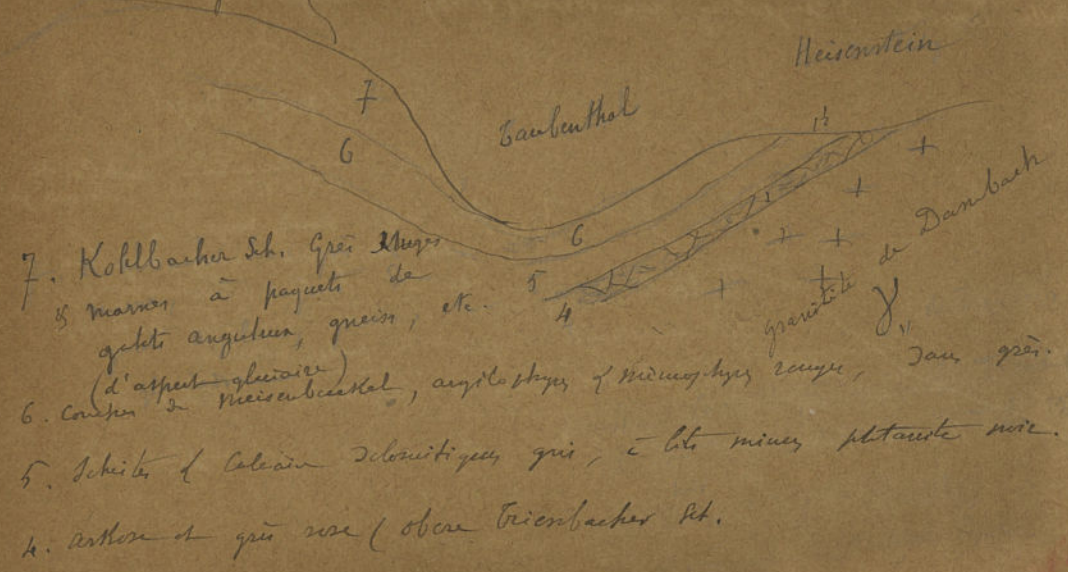 Heisenstein
7
Taubenthal
6
6
5
4
granitite de Dambach
γ"
7. Kohlbacher Sch. Grès rouges
& marnes à paquets de
galets anguleux, gneiss, etc.
(d'aspect glaciaire)
6. Couches de Meisenbuckel, argilophyres & mimophyres rouges, dans grès.
5. Schistes & Calcaire dolomitiques gris, à lits minces phtanite noir.
4. arkose et grès rose (obere Triembacher Sch.